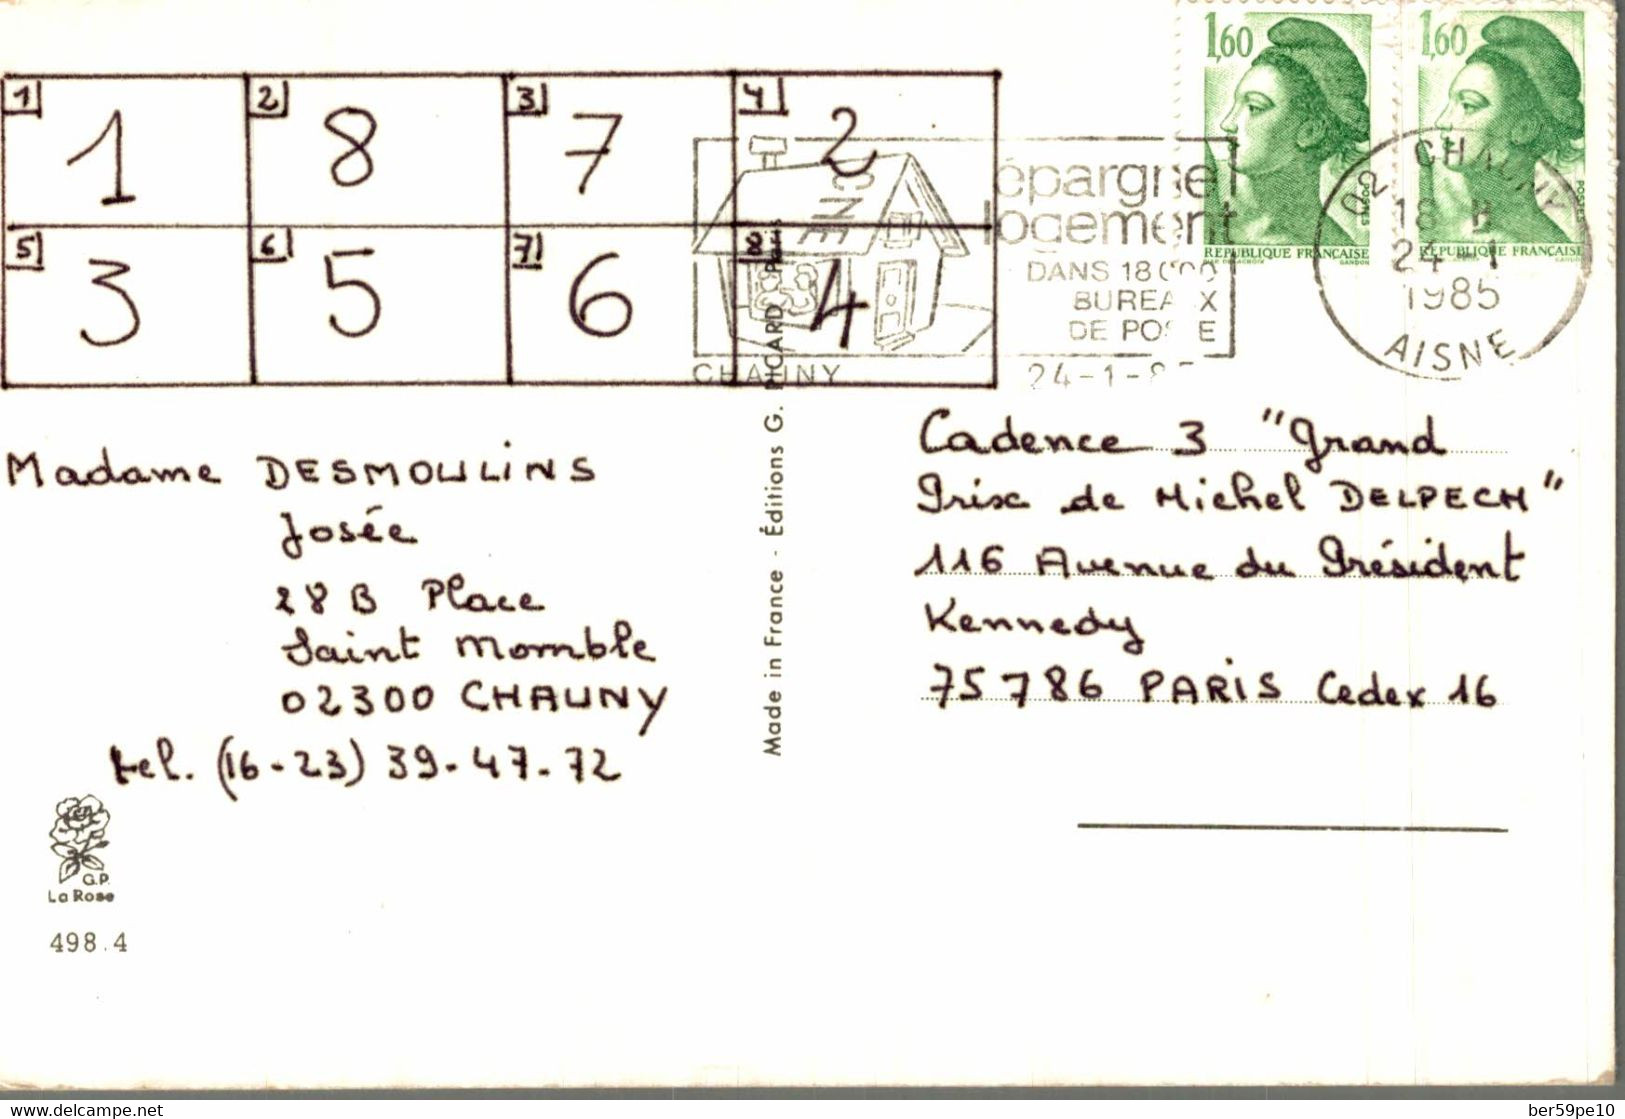 1,60 1,60
RÉPUBLIQUE FRANÇAISE RÉPUBLIQUE FRANÇAISE
1 2 3 4
1 8 7 2
5 6 7 8
3 5 6 4
CNE
épargne
logement
DANS 18000
BUREAUX
DE POSTE
CHAUNY 24-1-85
02 CHAUNY
18 H
24 -1
1985
AISNE
Madame DESMOULINS
Josée
28 B Place
Saint Momble
02300 CHAUNY
tel. (16-23) 39-47-72
Made in France - Éditions G. PICARD, Paris
Cadence 3 "Grand
Prix de Michel DELPECH"
116 Avenue du Président
Kennedy
75786 PARIS Cedex 16
G.P.
La Rose
498.4
delcampe.net
ber59pe10